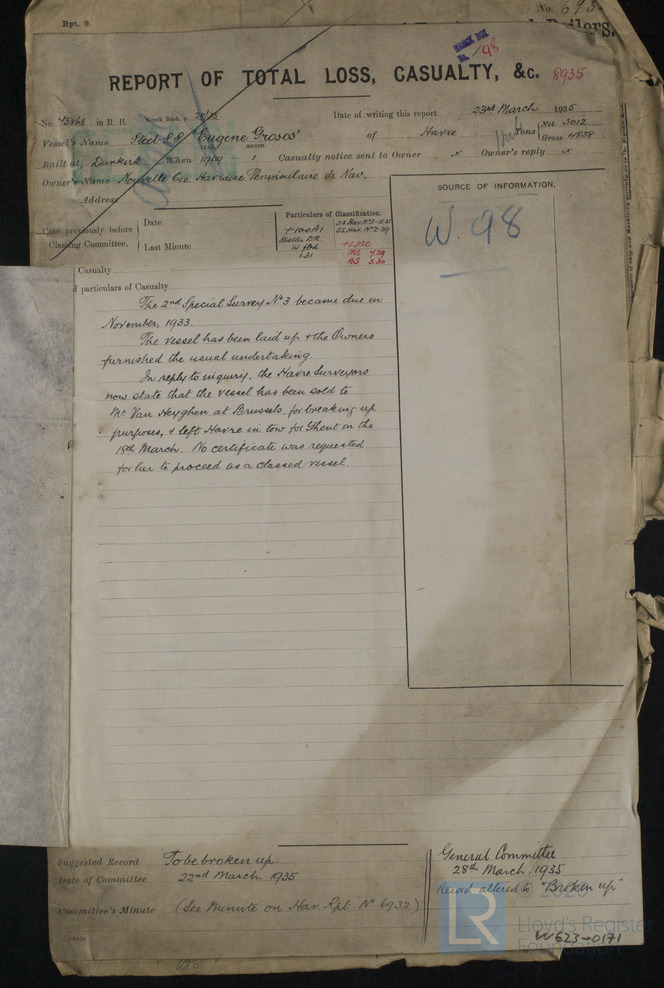 Rpt. 9.
No. 693
Boilers.
WRECK BOX
No. 98
REPORT OF TOTAL LOSS, CASUALTY, &c. 8935
No. 45868 in R. B. Wreck Book, p.
Date of writing this report 23rd March 1935
Vessel's Name Steel S.S. "Eugene Grosos" of Havre
Tons Net 3012
Gross 4838
YEAR. MONTH.
Built at Dunkirk When 1909 1 Casualty notice sent to Owner x Owner's reply x
Owner's Name Nouvelle Cie. Havraise Peninsulaire de Nav.
Address
SOURCE OF INFORMATION.
W. 98
Particulars of Classification.
Case previously before Classing Committee.
Date
Last Minute
+100A1
W fbd
1.31
SS.Hav.No.2-7.29
+LMC
MS 7.29
BS 5.30
Casualty
f particulars of Casualty
The 2nd Special Survey No 3 became due in
November, 1933.
The vessel has been laid up & the Owners
furnished the usual undertaking.
In reply to inquiry, the Havre Surveyors
now state that the vessel has been sold to
Mr. Van Heyghen at Brussels, for breaking up
purposes, & left Havre in tow for Ghent on the
18th March. No certificate was requested
for her to proceed as a classed vessel.
Suggested Record To be broken up.
Date of Committee 22nd March 1935
Committee's Minute (See Minute on Hav. Rpt. No 6932)
General Committee
28th March, 1935
Record altered to "Broken up"
LR
Lloyd's Register
Foundation
W623-0171